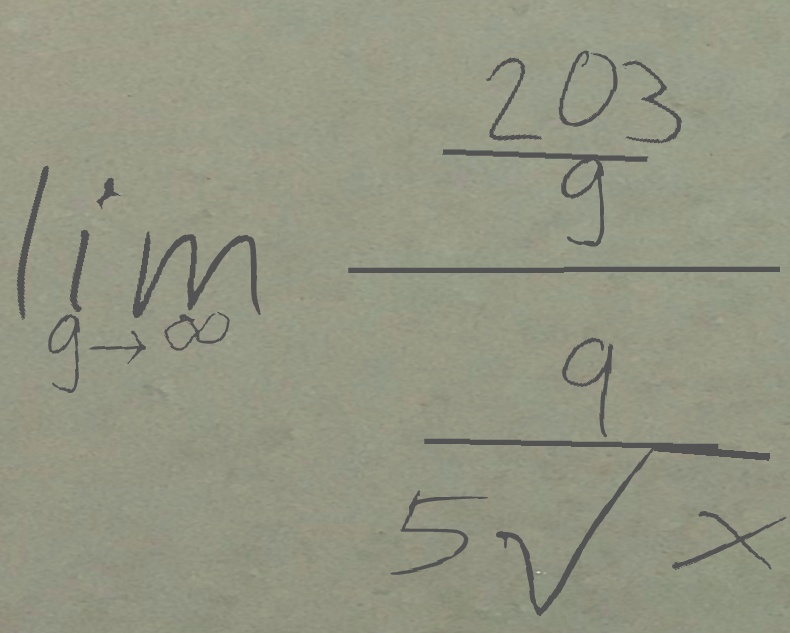 \lim_{g \to \infty} \frac{\frac{203}{g}}{\frac{9}{5\sqrt{x}}}